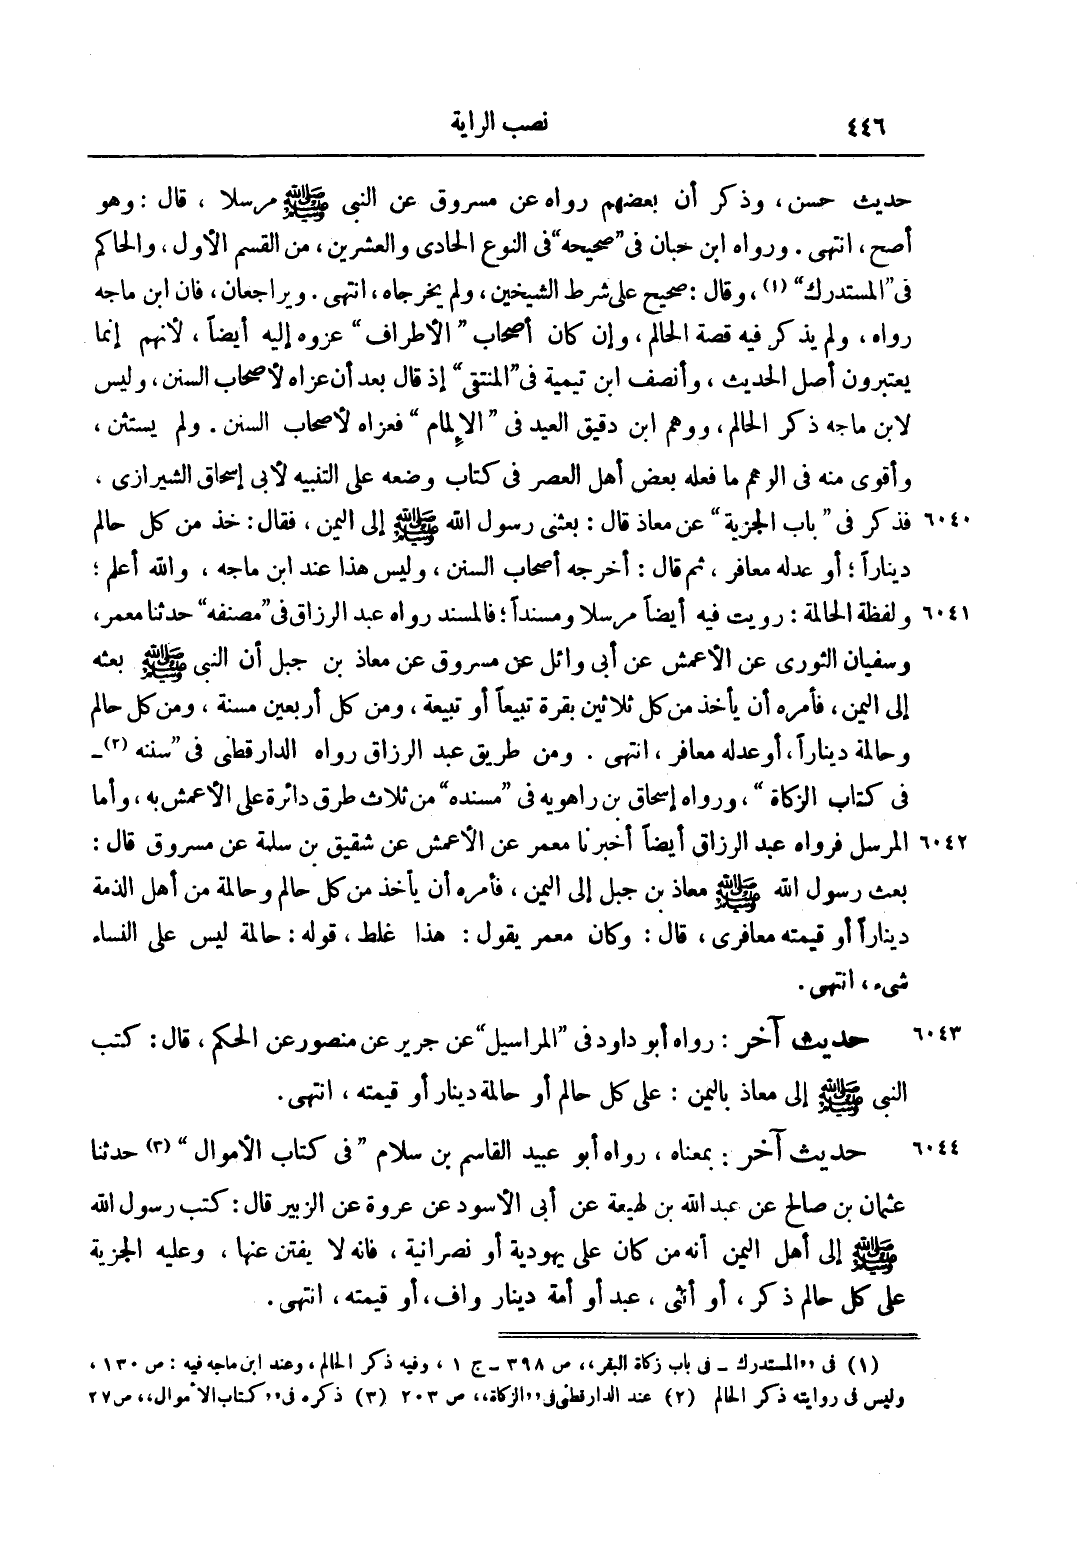 ٤٤٦ نصب الراية
حديث حسن ، وذكر أن بعضهم رواه عن مسروق عن النبى ﷺ مرسلا ، قال : وهو
أصح ، انتهى . ورواه ابن حبان فى "صحيحه" فى النوع الحادى والعشرين ، من القسم الأول ، والحاكم
فى "المستدرك" (١) ، وقال : صحيح على شرط الشيخين ، ولم يخرجاه ، انتهى . ويراجعان ، فان ابن ماجه
رواه ، ولم يذكر فيه قصة الحالم ، وإن كان أصحاب "الأطراف" عزوه إليه أيضاً ، لأنهم إنما
يعتبرون أصل الحديث ، وأنصف ابن تيمية فى "المنتقى" إذ قال بعد أن عزاه لأصحاب السنن ، وليس
لابن ماجه ذكر الحالم ، ووهم ابن دقيق العيد فى "الإلمام" فعزاه لأصحاب السنن . ولم يستثن ،
وأقوى منه فى الوهم ما فعله بعض أهل العصر فى كتاب وضعه على التنبيه لأبى إسحاق الشيرازى ،
٦٠٤٠ فذكر فى "باب الجزية" عن معاذ قال : بعثنى رسول الله ﷺ إلى اليمن ، فقال : خذ من كل حالم
ديناراً ؛ أو عدله معافر ، ثم قال : أخرجه أصحاب السنن ، وليس هذا عند ابن ماجه ، والله أعلم ؛
٦٠٤١ ولفظة الحالمة : رويت فيه أيضاً مرسلا ومسنداً ؛ فالمسند رواه عبد الرزاق فى "مصنفه" حدثنا معمر ،
وسفيان الثورى عن الأعمش عن أبى وائل عن مسروق عن معاذ بن جبل أن النبى ﷺ بعثه
إلى اليمن ، فأمره أن يأخذ من كل ثلاثين بقرة تبيعاً أو تبيعة ، ومن كل أربعين مسنة ، ومن كل حالم
وحالمة ديناراً ، أو عدله معافر ، انتهى . ومن طريق عبد الرزاق رواه الدارقطنى فى "سننه (٢) ـ
فى كتاب الزكاة" ، ورواه إسحاق بن راهويه فى "مسنده" من ثلاث طرق دائرة على الأعمش به ، وأما
٦٠٤٢ المرسل فرواه عبد الرزاق أيضاً أخبرنا معمر عن الأعمش عن شقيق بن سلمة عن مسروق قال :
بعث رسول الله ﷺ معاذ بن جبل إلى اليمن ، فأمره أن يأخذ من كل حالم وحالمة من أهل الذمة
ديناراً أو قيمته معافرى ، قال : وكان معمر يقول : هذا غلط ، قوله : حالمة ليس على النساء
شىء ، انتهى .
٦٠٤٣ حديث آخر : رواه أبو داود فى "المراسيل" عن جرير عن منصور عن الحكم ، قال : كتب
النبى ﷺ إلى معاذ باليمن : على كل حالم أو حالمة دينار أو قيمته ، انتهى .
٦٠٤٤ حديث آخر : بمعناه ، رواه أبو عبيد القاسم بن سلام "فى كتاب الأموال" (٣) حدثنا
عثمان بن صالح عن عبد الله بن لهيعة عن أبى الأسود عن عروة عن الزبير قال : كتب رسول الله
ﷺ إلى أهل اليمن أنه من كان على يهودية أو نصرانية ، فانه لا يفتن عنها ، وعليه الجزية
على كل حالم ذكر ، أو أنثى ، عبد أو أمة دينار واف ، أو قيمته ، انتهى .
(١) فى ,,المستدرك ـ فى باب زكاة البقر،، ص ٣٩٨ ـ ج ١ ، وفيه ذكر الحالم ، وعند ابن ماجه فيه : ص ١٣٠ ،
وليس فى روايته ذكر الحالم (٢) عند الدارقطنى فى ,,الزكاة،، ص ٢٠٣ (٣) ذكره فى ,,كتاب الأموال،، ص ٢٧